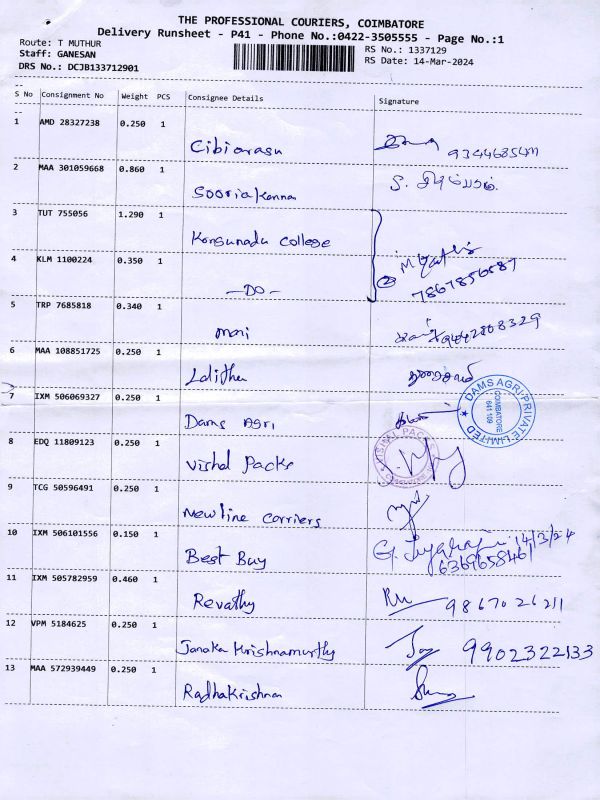 THE PROFESSIONAL COURIERS, COIMBATORE
Delivery Runsheet - P41 - Phone No.:0422-3505555 - Page No.:1
Route: T MUTHUR
RS No.: 1337129
Staff: GANESAN
RS Date: 14-Mar-2024
DRS No.: DCJB133712901
S No Consignment No Weight PCS Consignee Details Signature
1 AMD 28327238 0.250 1
Cibiarasu
2 MAA 301059668 0.860 1
Sooriakanna
3 TUT 755056 1.290 1
Kongunadu College
4 KLM 1100224 0.350 1
-DO-
7867856587
5 TRP 7685818 0.340 1
mani
9442808329
6 MAA 108851725 0.250 1
Lalitha
7 IXM 506069327 0.250 1
Dams Agri
DAMS AGRI PRIVATE LIMITED
COIMBATORE
641 109
8 EDQ 11809123 0.250 1
Vishal Packs
9 TCG 50596491 0.250 1
Newline Carriers
10 IXM 506101556 0.150 1
Best Buy
14/3/24
6369658461
11 IXM 505782959 0.460 1
Revathy
9867026211
12 VPM 5184625 0.250 1
Janaka Krishnamurthy
9902322133
13 MAA 572939449 0.250 1
Radhakrishnan